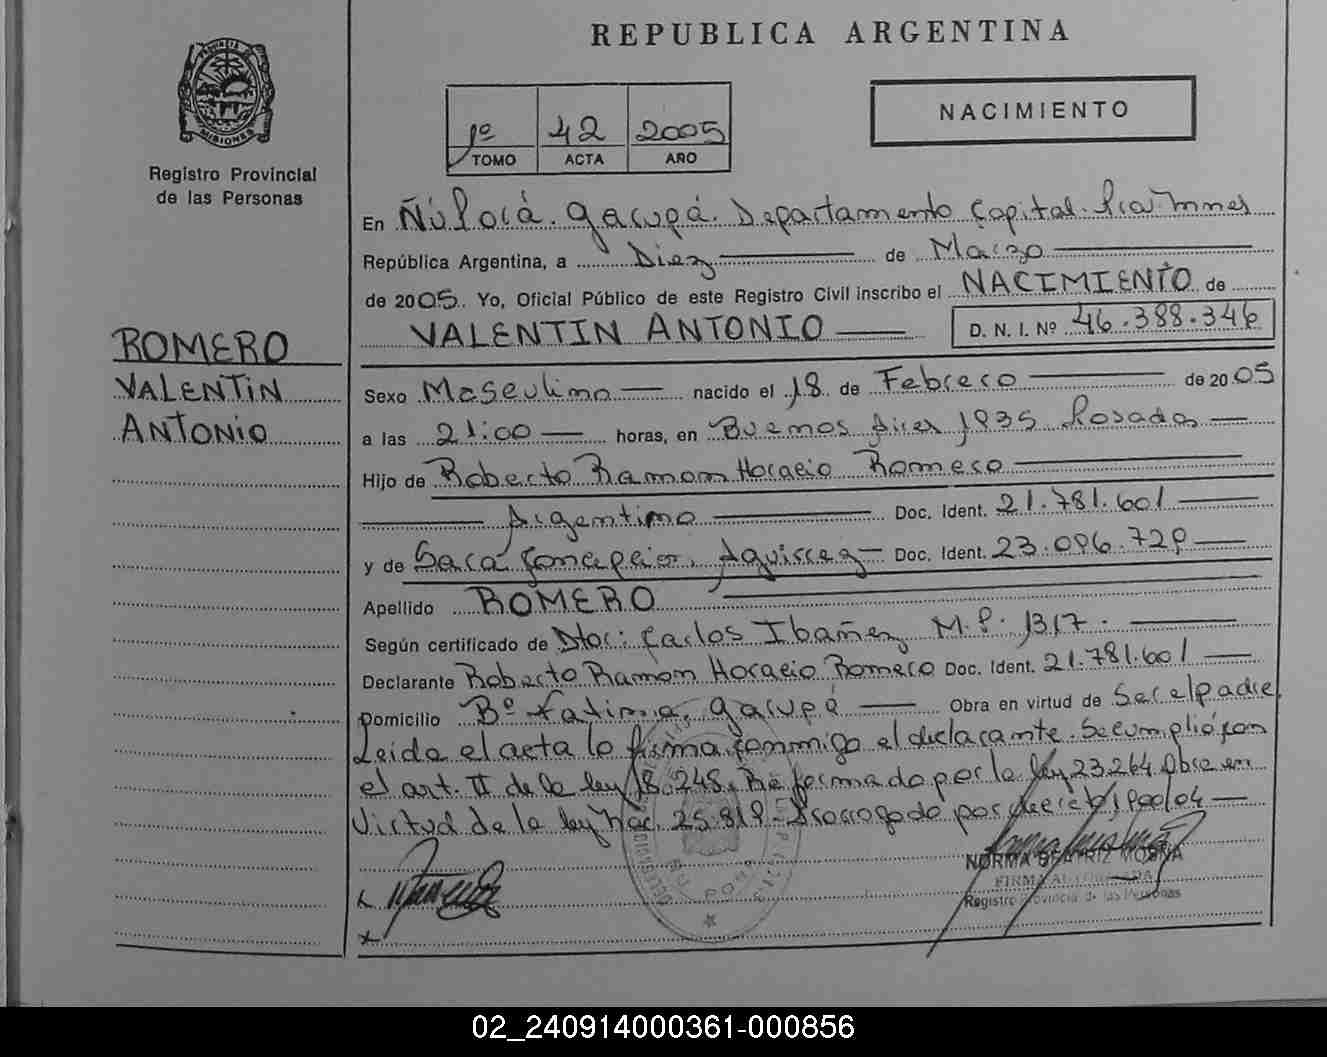 REPUBLICA ARGENTINA
PROVINCIA DE MISIONES
Registro Provincial
de las Personas
1º 42 2005
TOMO ACTA AÑO
NACIMIENTO
En Ñú Porá. Garupá. Departamento Capital. Pcia. Mnes
República Argentina, a Diez de Marzo
de 2005. Yo, Oficial Público de este Registro Civil inscribo el NACIMIENTO de
VALENTIN ANTONIO D. N. I. Nº 46.388.346
ROMERO
VALENTIN
ANTONIO
Sexo Masculino nacido el 18 de Febrero de 2005
a las 21:00 horas, en Buenos Aires 1935 Posadas
Hijo de Roberto Ramon Horacio Romero
Argentino Doc. Ident. 21.781.601
y de Sara Concepcion Aguirrez Doc. Ident. 23.096.729
Apellido ROMERO
Según certificado de Dtor: Carlos Ibañez M.P. 1317.
Declarante Roberto Ramón Horacio Romero Doc. Ident. 21.781.601
Domicilio Bº Fatima, Garupá Obra en virtud de Ser el padre
Leida el acta la firma conmigo el declarante. Se cumplió con
el art. II de la ley 18.248, Reformado por la ley 23.264 Obra en
Virtud de la ley Nac. 25.819 - Prorrogado por decreto
NORMA BEATRIZ
FIRMA AUTORIZADA
Registro Provincial de las Personas
02_240914000361-000856